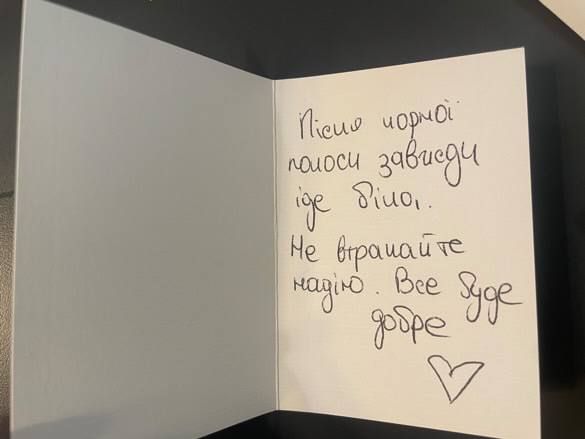 Після чорної
полоси завжди
іде біла.
Не втрачайте
надію. Все буде
добре